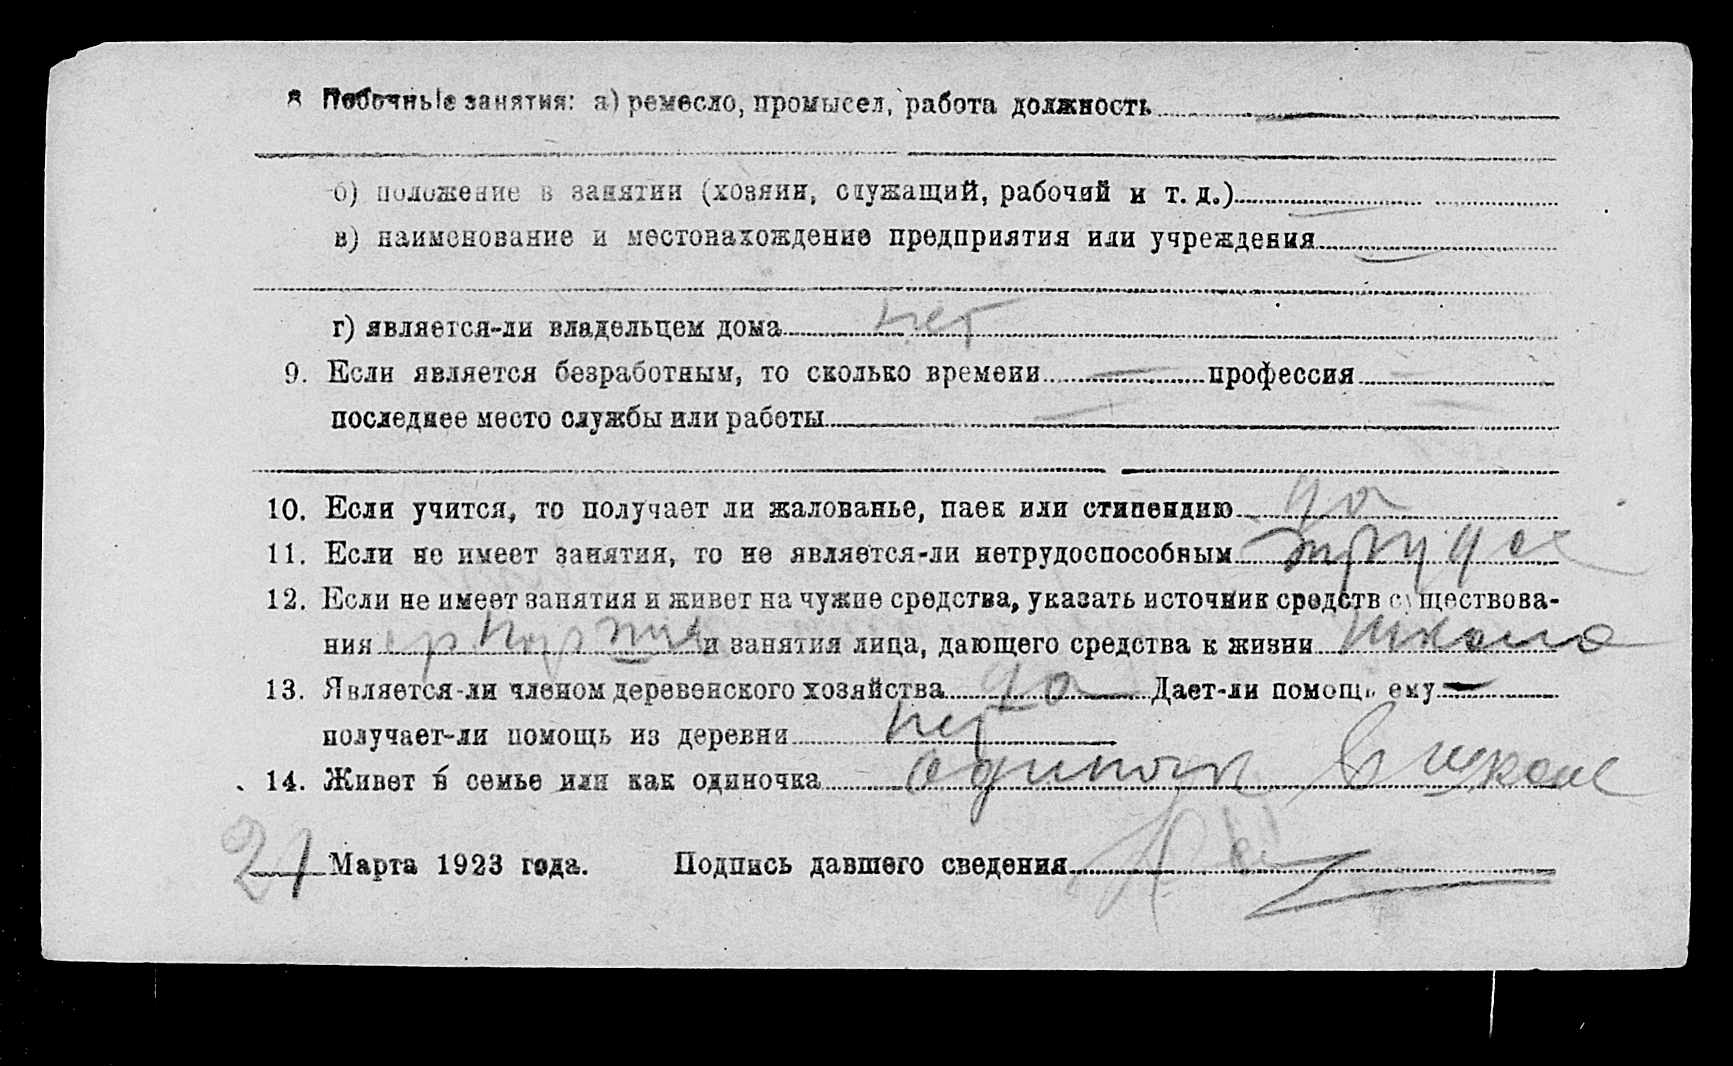 8 Побочные занятия: а) ремесло, промысел, работа должность —
б) положение в занятии (хозяин, служащий, рабочий и т. д.) —
в) наименование и местонахождение предприятия или учреждения —
г) является-ли владельцем дома нет
9. Если является безработным, то сколько времени — профессия —
последнее место службы или работы —
10. Если учится, то получает ли жалованье, паек или стипендию да
11. Если не имеет занятия, то не является-ли нетрудоспособным
12. Если не имеет занятия и живет на чужие средства, указать источник средств существова-
ния и занятия лица, дающего средства к жизни школа
13. Является-ли членом деревенского хозяйства да Дает-ли помощь ему —
получает-ли помощь из деревни нет
14. Живет в семье или как одиночка одиночк в школе
21 Марта 1923 года. Подпись давшего сведения